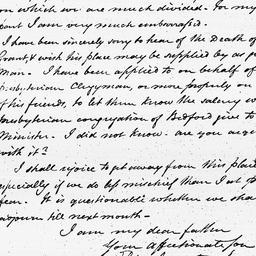 on which we are much divided. For my
part I am very much embarrassed.
I have been sincerely sorry to hear of the Death of
Grant, & wish his place may be supplied by as g
Man. I have been applied to on behalf of
Presbyterian Clergyman, or more properly on
of his friends, to let them know the salary w
Presbyterian congregation of Bedford give to
Minister. I did not know. are you acqu
with it?
I shall rejoice to get away from this place
especially if we do less mischief than I at p
fear. It is questionable whether we sha
adjourn till next month—
I am my dear father
Your affectionate son